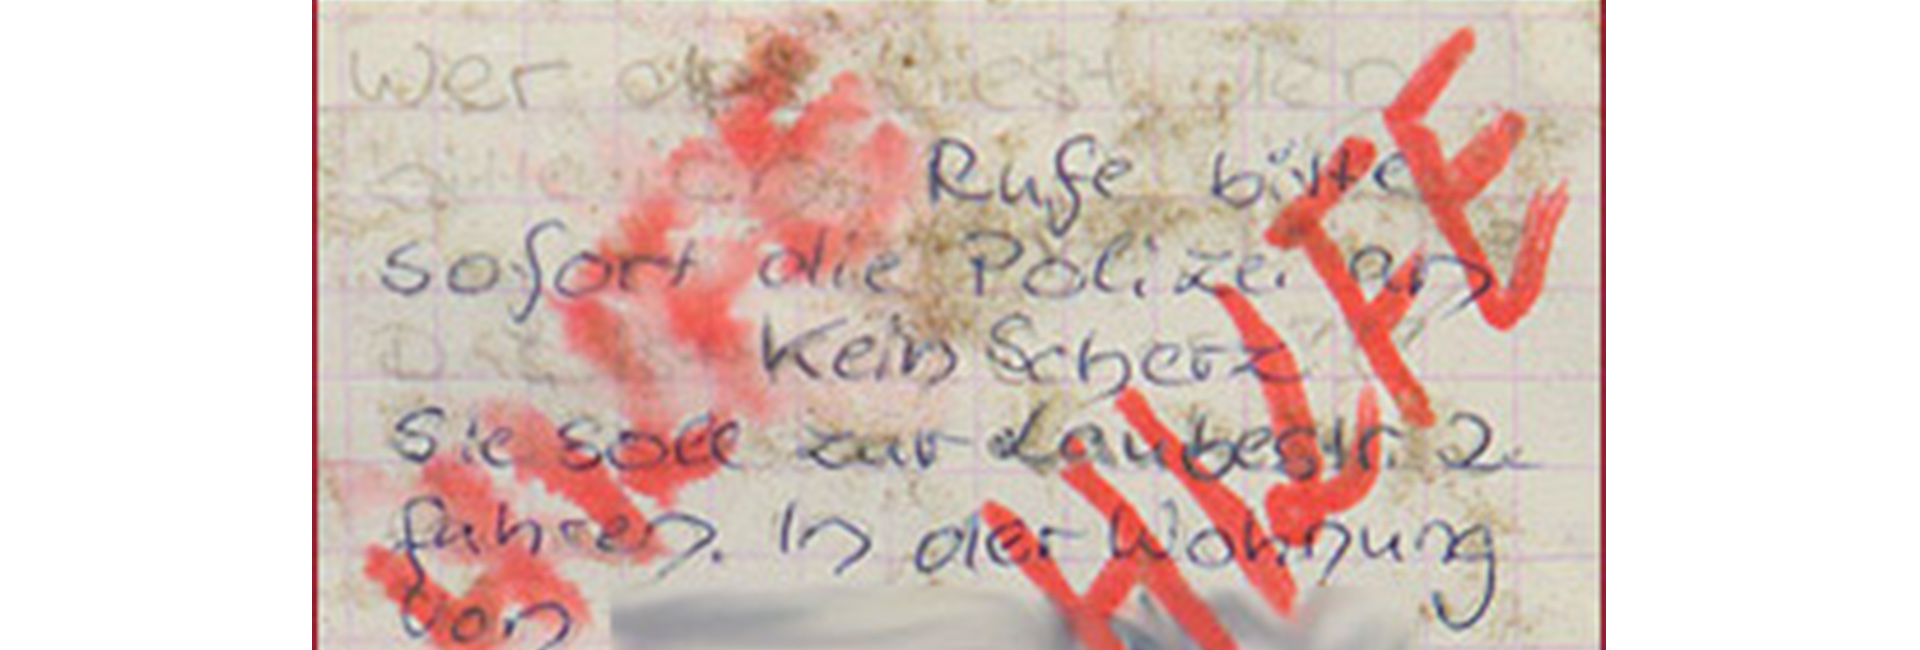 Wer das liest den
Rufe bitte
sofort die Polizei an
Kein Scherz
Sie soll zur Laubestr. 2
fahren. In der Wohnung
von
HILFE